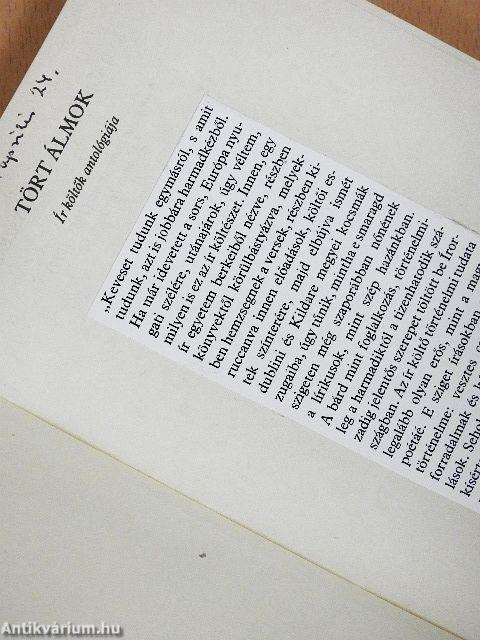 április 24.
TÖRT ÁLMOK
Ír költők antológiája
„Keveset tudunk egymásról, s amit
tudunk, azt is jobbára harmadkézből.
Ha már idevetett a sors, Európa nyu-
gati szélére, utánajárok, úgy véltem,
milyen is ez az ír költészet. Innen, egy
ír egyetem berkeiből nézve, részben
könyvektől körülbástyázva, melyek-
ben hemzsegnek a versek, részben ki-
ruccanva innen előadások, költői es-
tek színterére, majd elbújva ismét
dublini és Kildare megyei kocsmák
zugaiba, úgy tűnik, mintha e smaragd
szigeten még szaporábban nőnének
a lírikusok, mint szép hazánkban.
A bárd mint foglalkozás, történelmi-
leg a harmadiktól a tizenhatodik szá-
zadig jelentős szerepet töltött be Íror-
szágban. Az ír költő történelmi tudata
legalább olyan erős, mint a magyar
poétáé. E sziget írásokban
történelme: vesztes
forradalmak és
lások. Sehol
kísért
Antikvárium.hu